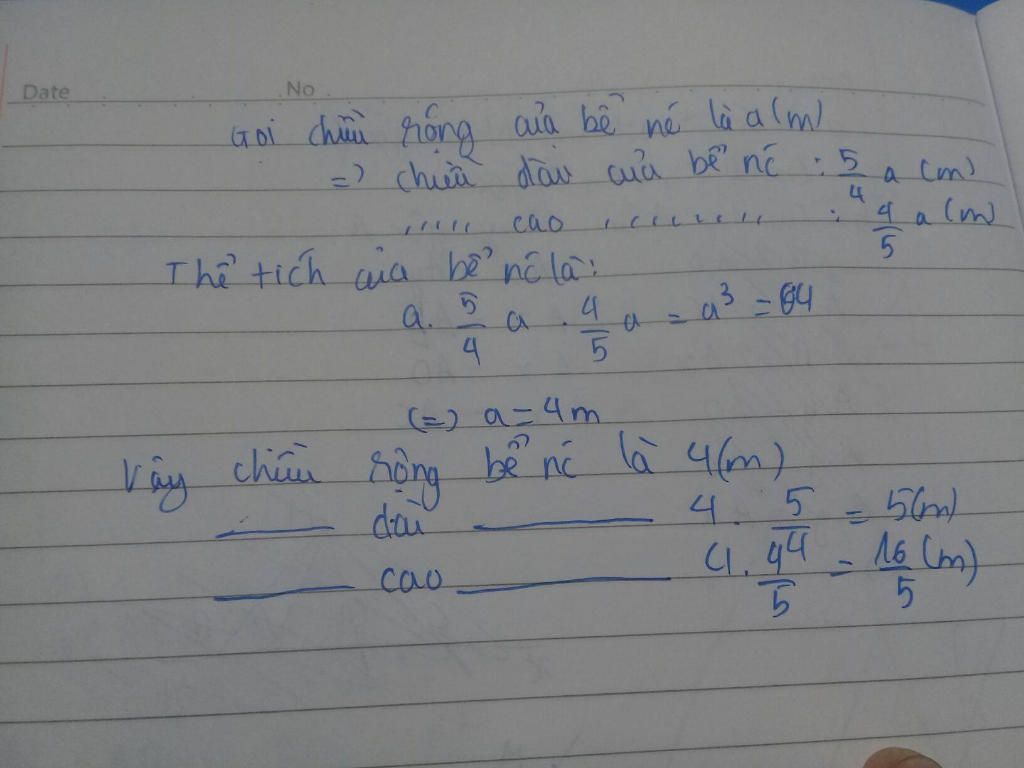 Date No
Goi chiều rộng của bể nć là a(m)
=> chiều dài của bể nć : 5/4 a (m)
,,,,, cao ,,,,,,,,, : 4/5 a (m)
Thể tích của bể nć là:
a. 5/4 a . 4/5 a = a³ = 64
(=) a = 4m
Vậy chiều rộng bể nć là 4(m)
—— dài —— 4 . 5/4 = 5(m)
—— cao —— 4 . 4/5 = 16/5 (m)